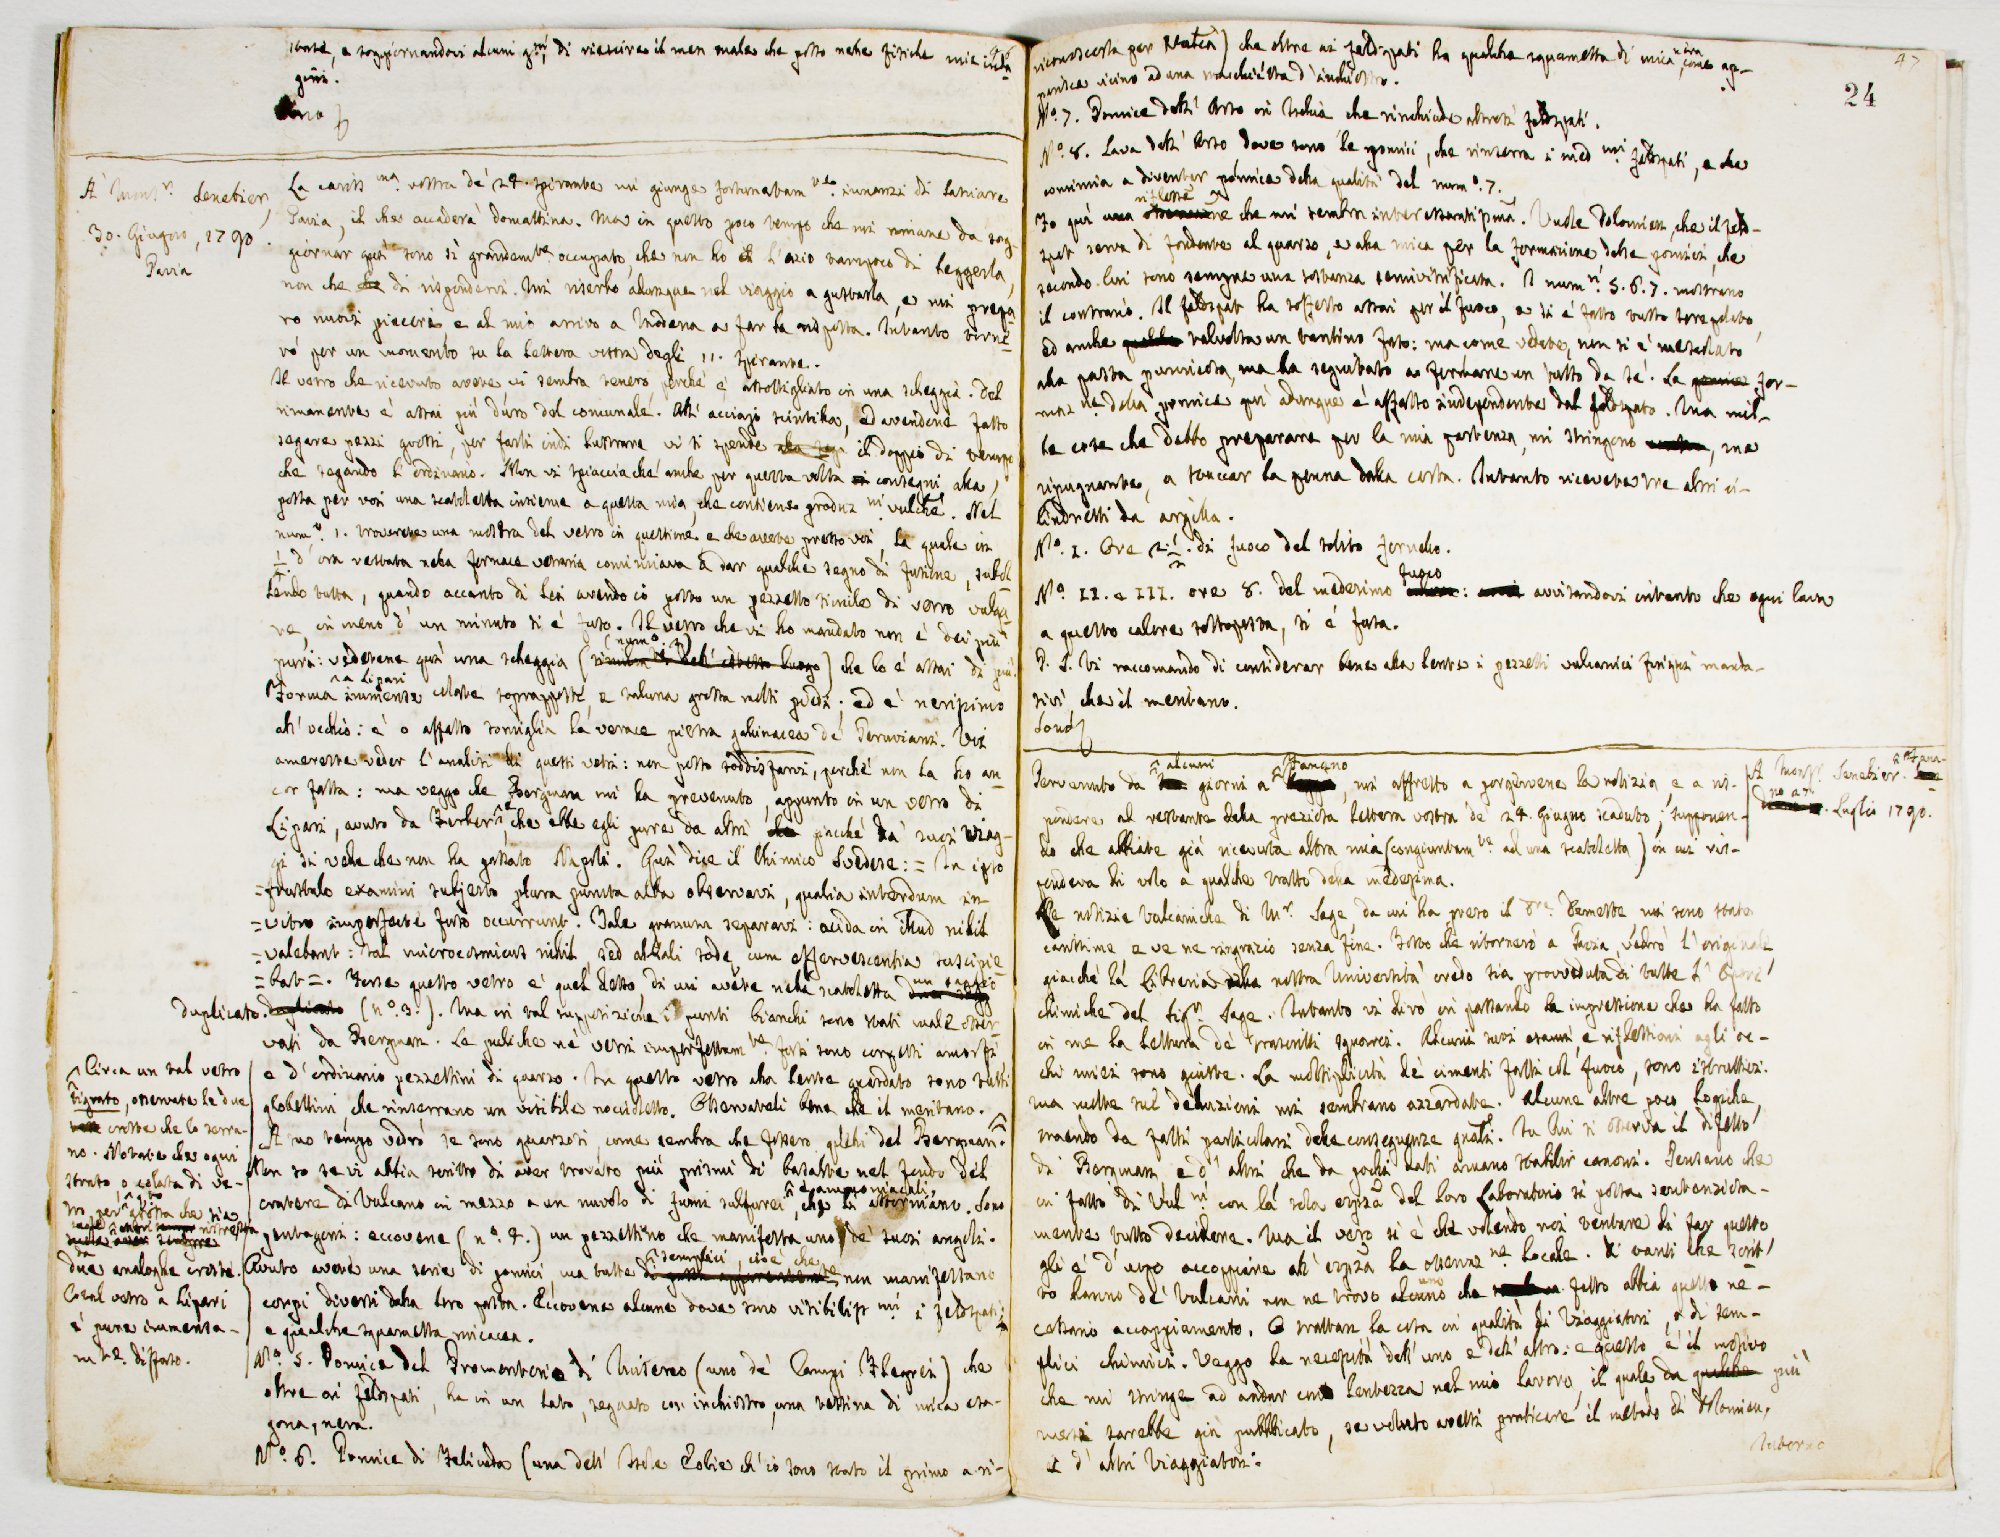 state, e soggiornandovi alcuni gni, di riescire il men male che posso nelle fisiche mie inda-
gini.
Sono
A Monsr. Senebier,
30. Giugno, 1790.
Pavia
La cariss ma. vostra de' 24. spirante mi giunge fortunatam te. innanzi di lasciare
Pavia, il che accaderà domattina. Ma in questo poco tempo che mi rimane da sog-
giornar quì sono sì grandemte occupato, che non ho l'ozio tampoco di leggerla,
non che di rispondervi. Mi riserbo adunque nel viaggio a gustarla, e mi prepa-
ro nuovi piaceri e al mio arrivo a Modena a far la risposta. Intanto torne-
rò per un momento su la lettera vostra degli 11. spirante.
Il vetro che ricevuto avete vi sembra tenero perché è assottigliato in una scheggia. Del
rimanente è assai più duro del comunale. All' acciajo scintilla, ed avendone fatto
segare pezzi grossi, per farli indi lustrare vi si spende il doppio di tempo
che segando l'ordinario. Non vi spiaccia che anche per questa volta consegni alla
posta per voi una scatoletta insieme a questa mia, che contiene produz ni. vulche. Nel
numo. 1. troverete una mostra del vetro in questione e che avete presso voi, la quale in
1/2 d'ora restata nella fornace vetraria cominciava a dar qualche segno di fusione, sussi-
stendo tutta, quando accanto di lei avendo io posto un pezzetto simile di vetro volga-
re, in meno d'un minuto si è fuso. Il vetro che vi ho mandato non è dei più
puri: vedetene quì una scheggia (numo. 2) che lo è assai di più.
Forma a Lipari immense colate soprapposte, e taluna grossa molti piedi; ed è nerissimo
all' occhio: e o affatto somiglia la verace pietra galinacea de' Peruviani. Voi
amereste veder l'analisi di questi vetri: non posso soddisfarvi, perché non la ho an-
cor fatta: ma veggo che Bergman mi ha prevenuto, appunto in un vetro di
Lipari, avuto da Ferber, che ebbe egli pure da altri giacché da' suoi viag-
gi si vede che non ha passato Napoli. Così dice il Chimico Svedese: = In ipso
= frustulo examini subjecto plura puncta alba observavi, qualia interdum in
= vitro imperfecte fuso occurrunt. Tale granum separavi: acida in illud nihil
= valebant: sal microcosmicus nihil sed alkali sodæ cum effervescentia suscipie-
= bat =. Forse questo vetro è quel desso di cui avete nella scatoletta un saggio
duplicato. (no. 3.). Ma in tal supposizione i punti bianchi sono stati male osser-
vati da Bergman. Le pulliche ne' vetri imperfettam te. fusi sono corpetti amorfi
e d'ordinario pezzettini di quarzo. In questo vetro alla lente guardato sono tutti
globettini, che rinserrano un visibile noccioletto. Osservateli bene che il meritano.
A suo tempo vedrò se sono quarzosi, come sembra che fossero quelli del Bergman.
Circa un tal vetro
tigrato, osservate le due
croste che lo serra-
no. Notate che ogni
strato, o colata di ve-
tro, per grossa che sia
due analoghe croste.
Cotal vetro a Lipari
è pure immensa-
m te. diffuso.
Non so se vi abbia scritto di aver trovato più prismi di basalte nel fondo del
cratere di Vulcano in mezzo a un nuvolo di fumi sulfurei, e ammoniacali, che li attorniano. Sono
pentagoni: eccovene (no. 4.) un pezzettino che manifesta uno de' suoi angoli.
Avuto avete una serie di pomici, ma tutte semplici, cioè che non manifestano
corpi diversi dalla loro pasta. Eccovene alcune dove sono visibiliss mi. i feldspati,
e qualche squametta micacea.
No. 5. Pomice del Promontorio di Miseno (uno de' Campi Flegrei) che
oltre ai feldspati, ha in un lato, segnato con inchiostro, una lastrina di mica esa-
gona, nera.
No. 6. Pomice di Felicuda (una dell' Isole Eolie ch' io sono stato il primo a ri-
47
24
riconoscerla per vulca) che oltre ai feldspati ha qualche squametta di mica nera, come ap-
parisce vicino ad una macchietta d'inchiostro.
No. 7. Pomice dell' Arso in Ischia che rinchiude altresì feldspati.
No. 8. Lava dell' Arso dove sono le pomici, che rinserra i med mi. feldspati, e che
comincia a diventar pomice della qualità del numo. 7.
Fo quì una riflessione che mi sembra interessantissima. Vuole Dolomieu, che il feld-
spat serva di fondente al quarzo, e alla mica per la formazione delle pomici, che
secondo lui sono sempre una sostanza semivitrificata. I num ri. 5. 6. 7. mostrano
il contrario. Il feldspat ha sofferto assai per il fuoco, e si è fatto tutto screpolato,
ed anche talvolta un tantino fuso: ma come vedete, non si è mescolato
alla pasta pumicosa, ma ha seguitato a formare un tutto da sé. La for-
maz ne. della pomice quì adunque è affatto independente dal feldspato. Ma mil-
le cose che debbo preparare per la mia partenza, mi stringono, me
ripugnante, a staccar la penna dalla carta. Intanto ricevete tre altri ci-
lindretti da argilla.
No. I. Ore 2. 1/2. di fuoco del solito fornello.
No. II. e III. ore 8. del medesimo fuoco: avvisandovi intanto che ogni lava
a questo calore sottoposta, si è fusa.
P. S. Vi raccomando di considerar bene alla lente i pezzetti vulcanici finissi manda-
tivi, che il meritano.
Sono
A Monsr. Senebier. a Fana-
no a' . Luglio 1790.
Pervenuto da alcuni giorni a Fanano, mi affretto a porgervene la notizia, e a ris-
pondere al restante della preziosa lettera vostra de' 24. Giugno scaduto, supponen-
do che abbiate già ricevuta altra mia (congiuntam te. ad una scatoletta) in cui ris-
pondeva di volo a qualche tratto della medesima.
Le notizie Vulcaniche di Mr. Sage da cui ha preso il Demeste mi sono state
carissime e ve ne ringrazio senza fine. Tosto che ritornerò a Pavia vedrò l'originale,
giacché la Libreria della nostra Università credo sia provveduta di tutte l'Opere
chimiche del Sigr. Sage. Intanto vi dirò in passando la impressione che ha fatto
in me la lettura de' trascritti squarci. Alcuni suoi esami, e riflessioni agli oc-
chi miei sono giuste. La moltiplicità de' cimenti fatti col fuoco, sono istruttivi.
ma molte sul deduzioni mi sembrano azzardate. Alcune altre poco logiche,
traendo da fatti particolari delle conseguenze gnali. In lui si osserva il difetto
di Bergman e d'altri che da pochi dati amano stabilir canoni. Pensano che
in fatto di Vul ni. con la sola espza del loro Laboratorio si possa sentenziosa-
mente tutto decidere. Ma il vero si è che volendo noi tentare di far questo
gli è d'uopo accoppiare all' espza la osservaz ne. locale. Di tanti che scrit-
to hanno de' Vulcani non ne trovo alcuno che fatto abbia questo ne-
cessario accoppiamento. O trattan la cosa in qualità di Viaggiatori, o di sem-
plici chimici. Veggo la necessità dell' uno e dell' altro: e questo è il motivo
che mi stringe ad andar con lentezza nel mio lavoro, il quale da più
mesi sarebbe già pubblicato, se voluto avessi praticare il metodo di Dolomieu,
e d'altri Viaggiatori.
Intorno